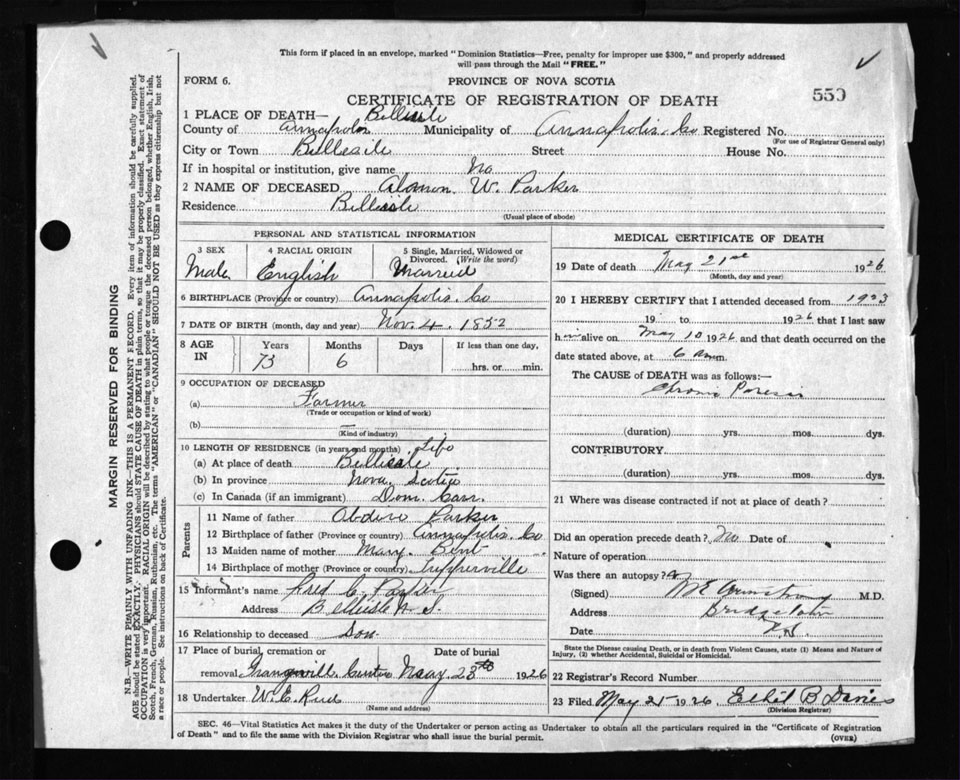 This form if placed in an envelope, marked "Dominion Statistics—Free, penalty for improper use $300," and properly addressed
will pass through the Mail "FREE."
FORM 6.
PROVINCE OF NOVA SCOTIA
CERTIFICATE OF REGISTRATION OF DEATH
550
1 PLACE OF DEATH— Bellisle
County of Annapolis Municipality of Annapolis. Co Registered No.
(For use of Registrar General only)
City or Town Belleisle Street House No.
If in hospital or institution, give name No
2 NAME OF DECEASED W. Parker
Residence Bellisle
(Usual place of abode)
PERSONAL AND STATISTICAL INFORMATION
3 SEX 4 RACIAL ORIGIN 5 Single, Married, Widowed or
Divorced. (Write the word)
Male English Married
6 BIRTHPLACE (Province or country) Annapolis. Co
7 DATE OF BIRTH (month, day and year) Nov. 4. 1852
8 AGE IN Years Months Days If less than one day,
73 6 hrs. or min.
9 OCCUPATION OF DECEASED
(a) Farmer
(Trade or occupation or kind of work)
(b) —
(Kind of industry)
10 LENGTH OF RESIDENCE (in years and months) Life
(a) At place of death Bellisle
(b) In province Nova Scotia
(c) In Canada (if an immigrant) Dom. Can.
Parents
11 Name of father Parker
12 Birthplace of father (Province or country) Annapolis. Co
13 Maiden name of mother Mary. Bent
14 Birthplace of mother (Province or country) Tupperville
15 Informant's name Fred C. Parker
Address Bellisle N. S.
16 Relationship to deceased Son
17 Place of burial, cremation or Date of burial
removal Granville Centre May. 23rd 1926
18 Undertaker W. E.
(Name and address)
MEDICAL CERTIFICATE OF DEATH
19 Date of death May 21st 1926
(Month, day and year)
20 I HEREBY CERTIFY that I attended deceased from 1923
19 to 1926 that I last saw
him alive on May 10 1926 and that death occurred on the
date stated above, at 6 am m.
The CAUSE of DEATH was as follows:—
Chronic Paresis
(duration) yrs. mos. dys.
CONTRIBUTORY
(duration) yrs. mos. dys.
21 Where was disease contracted if not at place of death?
Did an operation precede death? No Date of
Nature of operation
Was there an autopsy?
(Signed) M E Armstrong M.D.
Address Bridgetown
Date N.S.
State the Disease causing Death, or in death from Violent Causes, state (1) Means and Nature of
Injury, (2) whether Accidental, Suicidal or Homicidal.
22 Registrar's Record Number
23 Filed May 25 1926 Ethel B. Davies
(Division Registrar)
SEC. 46—Vital Statistics Act makes it the duty of the Undertaker or person acting as Undertaker to obtain all the particulars required in the "Certificate of Registration
of Death" and to file the same with the Division Registrar who shall issue the burial permit.
(OVER)
MARGIN RESERVED FOR BINDING
N.B.—WRITE PLAINLY WITH UNFADING INK—THIS IS A PERMANENT RECORD. Every item of information should be carefully supplied.
AGE should be stated EXACTLY. PHYSICIANS should STATE CAUSE OF DEATH in plain terms, so that it may be properly classified. Exact statement of
OCCUPATION is very important. RACIAL ORIGIN will be described by stating to what people or tongue the deceased person belonged, whether English, Irish,
Scotch, French, German, Russian, Ruthenian, etc. The terms "AMERICAN" or "CANADIAN" SHOULD NOT BE USED as they express citizenship but not
a race or people. See instructions on back of Certificate.